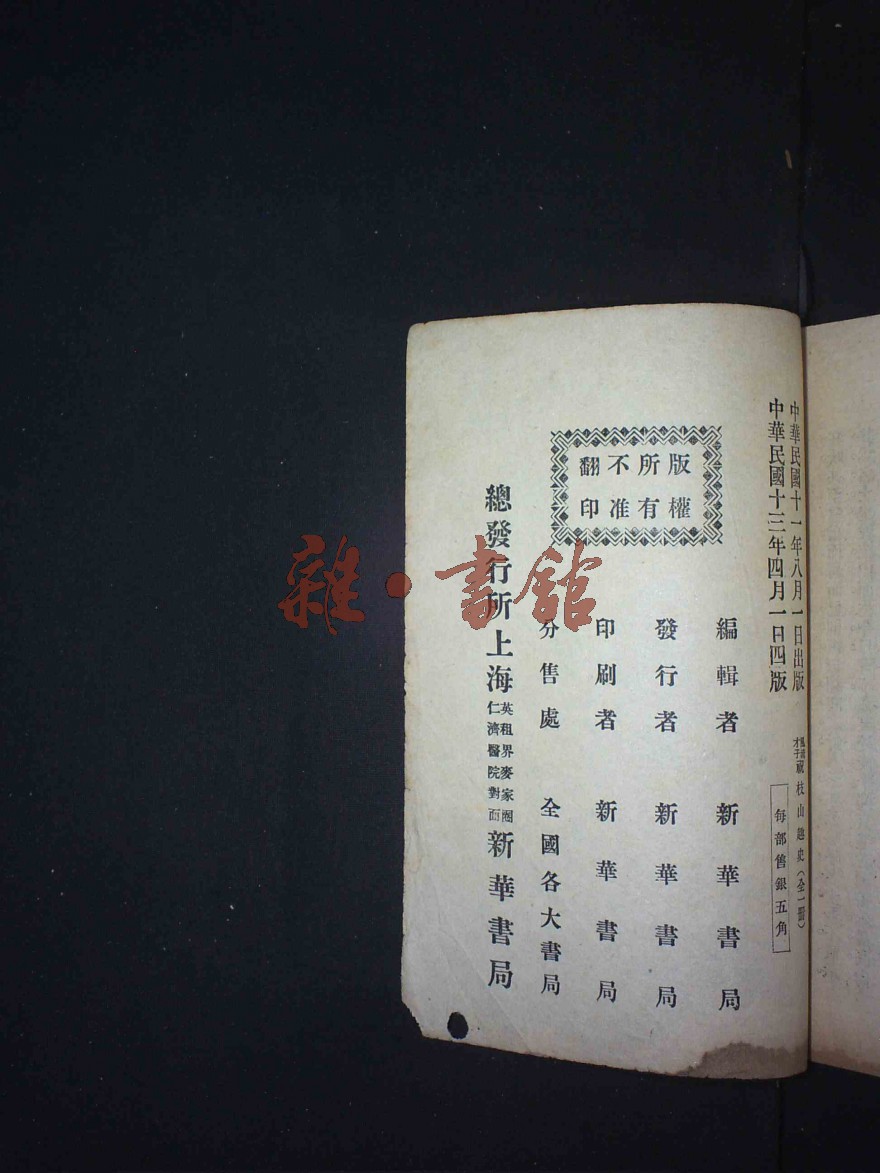 中華民國十一年八月一日出版
中華民國十三年四月一日四版
風流才子祝枝山趣史（全一冊）
每部售銀五角
版權
所有
不准
翻印
編輯者 新華書局
發行者 新華書局
印刷者 新華書局
分售處 全國各大書局
總發行所上海英租界麥家圈仁濟醫院對面新華書局
雜·書館